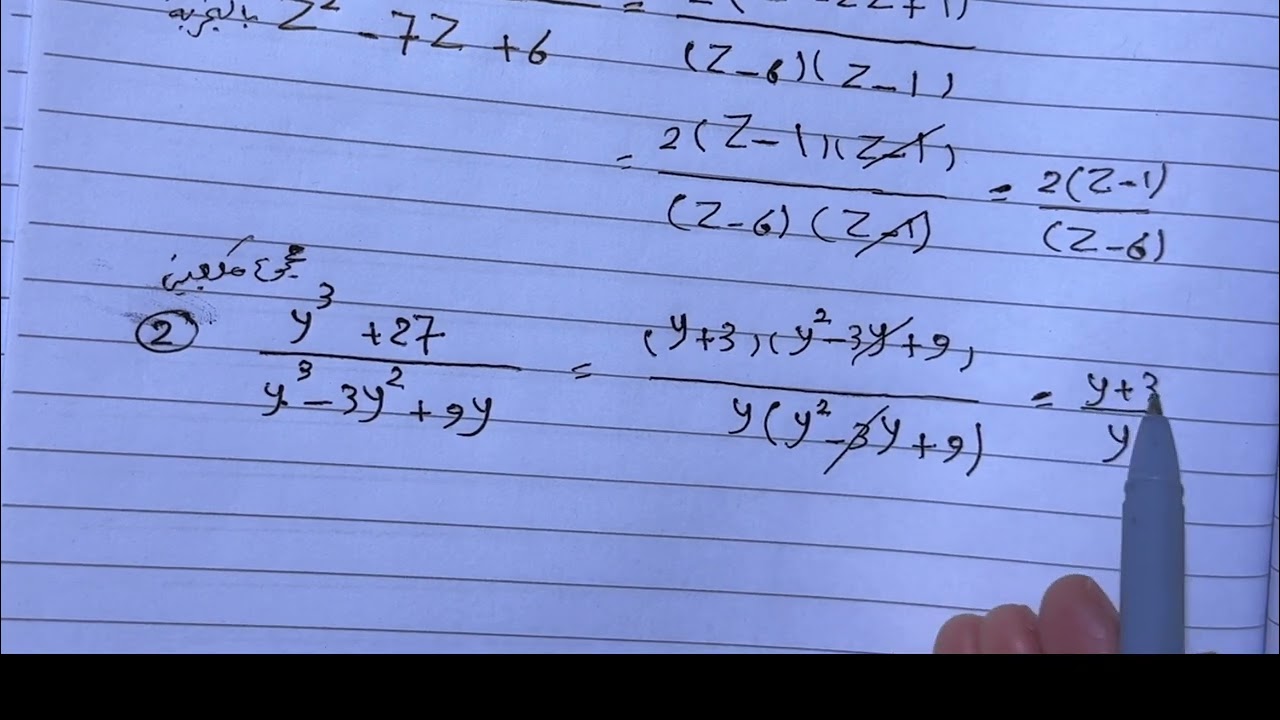 = 2( -2Z+1)
بالتجربة Z² - 7Z + 6
(Z-6)(Z-1)
= 2(Z-1)(Z-1) / (Z-6)(Z-1) = 2(Z-1) / (Z-6)
مجموع مكعبين
② y³ + 27 / y³ - 3y² + 9y = (y+3)(y² - 3y + 9) / y(y² - 3y + 9) = y+3 / y